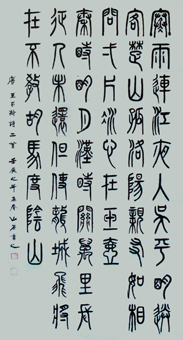 寒雨連江夜入吳平明送
客楚山孤洛陽親友如相
問弌片冰心在玉壺
秦時明月漢時關萬里長
征人未還但使龍城飛將
在不教胡馬度陰山
唐王昌齡詩二首 壬辰之年